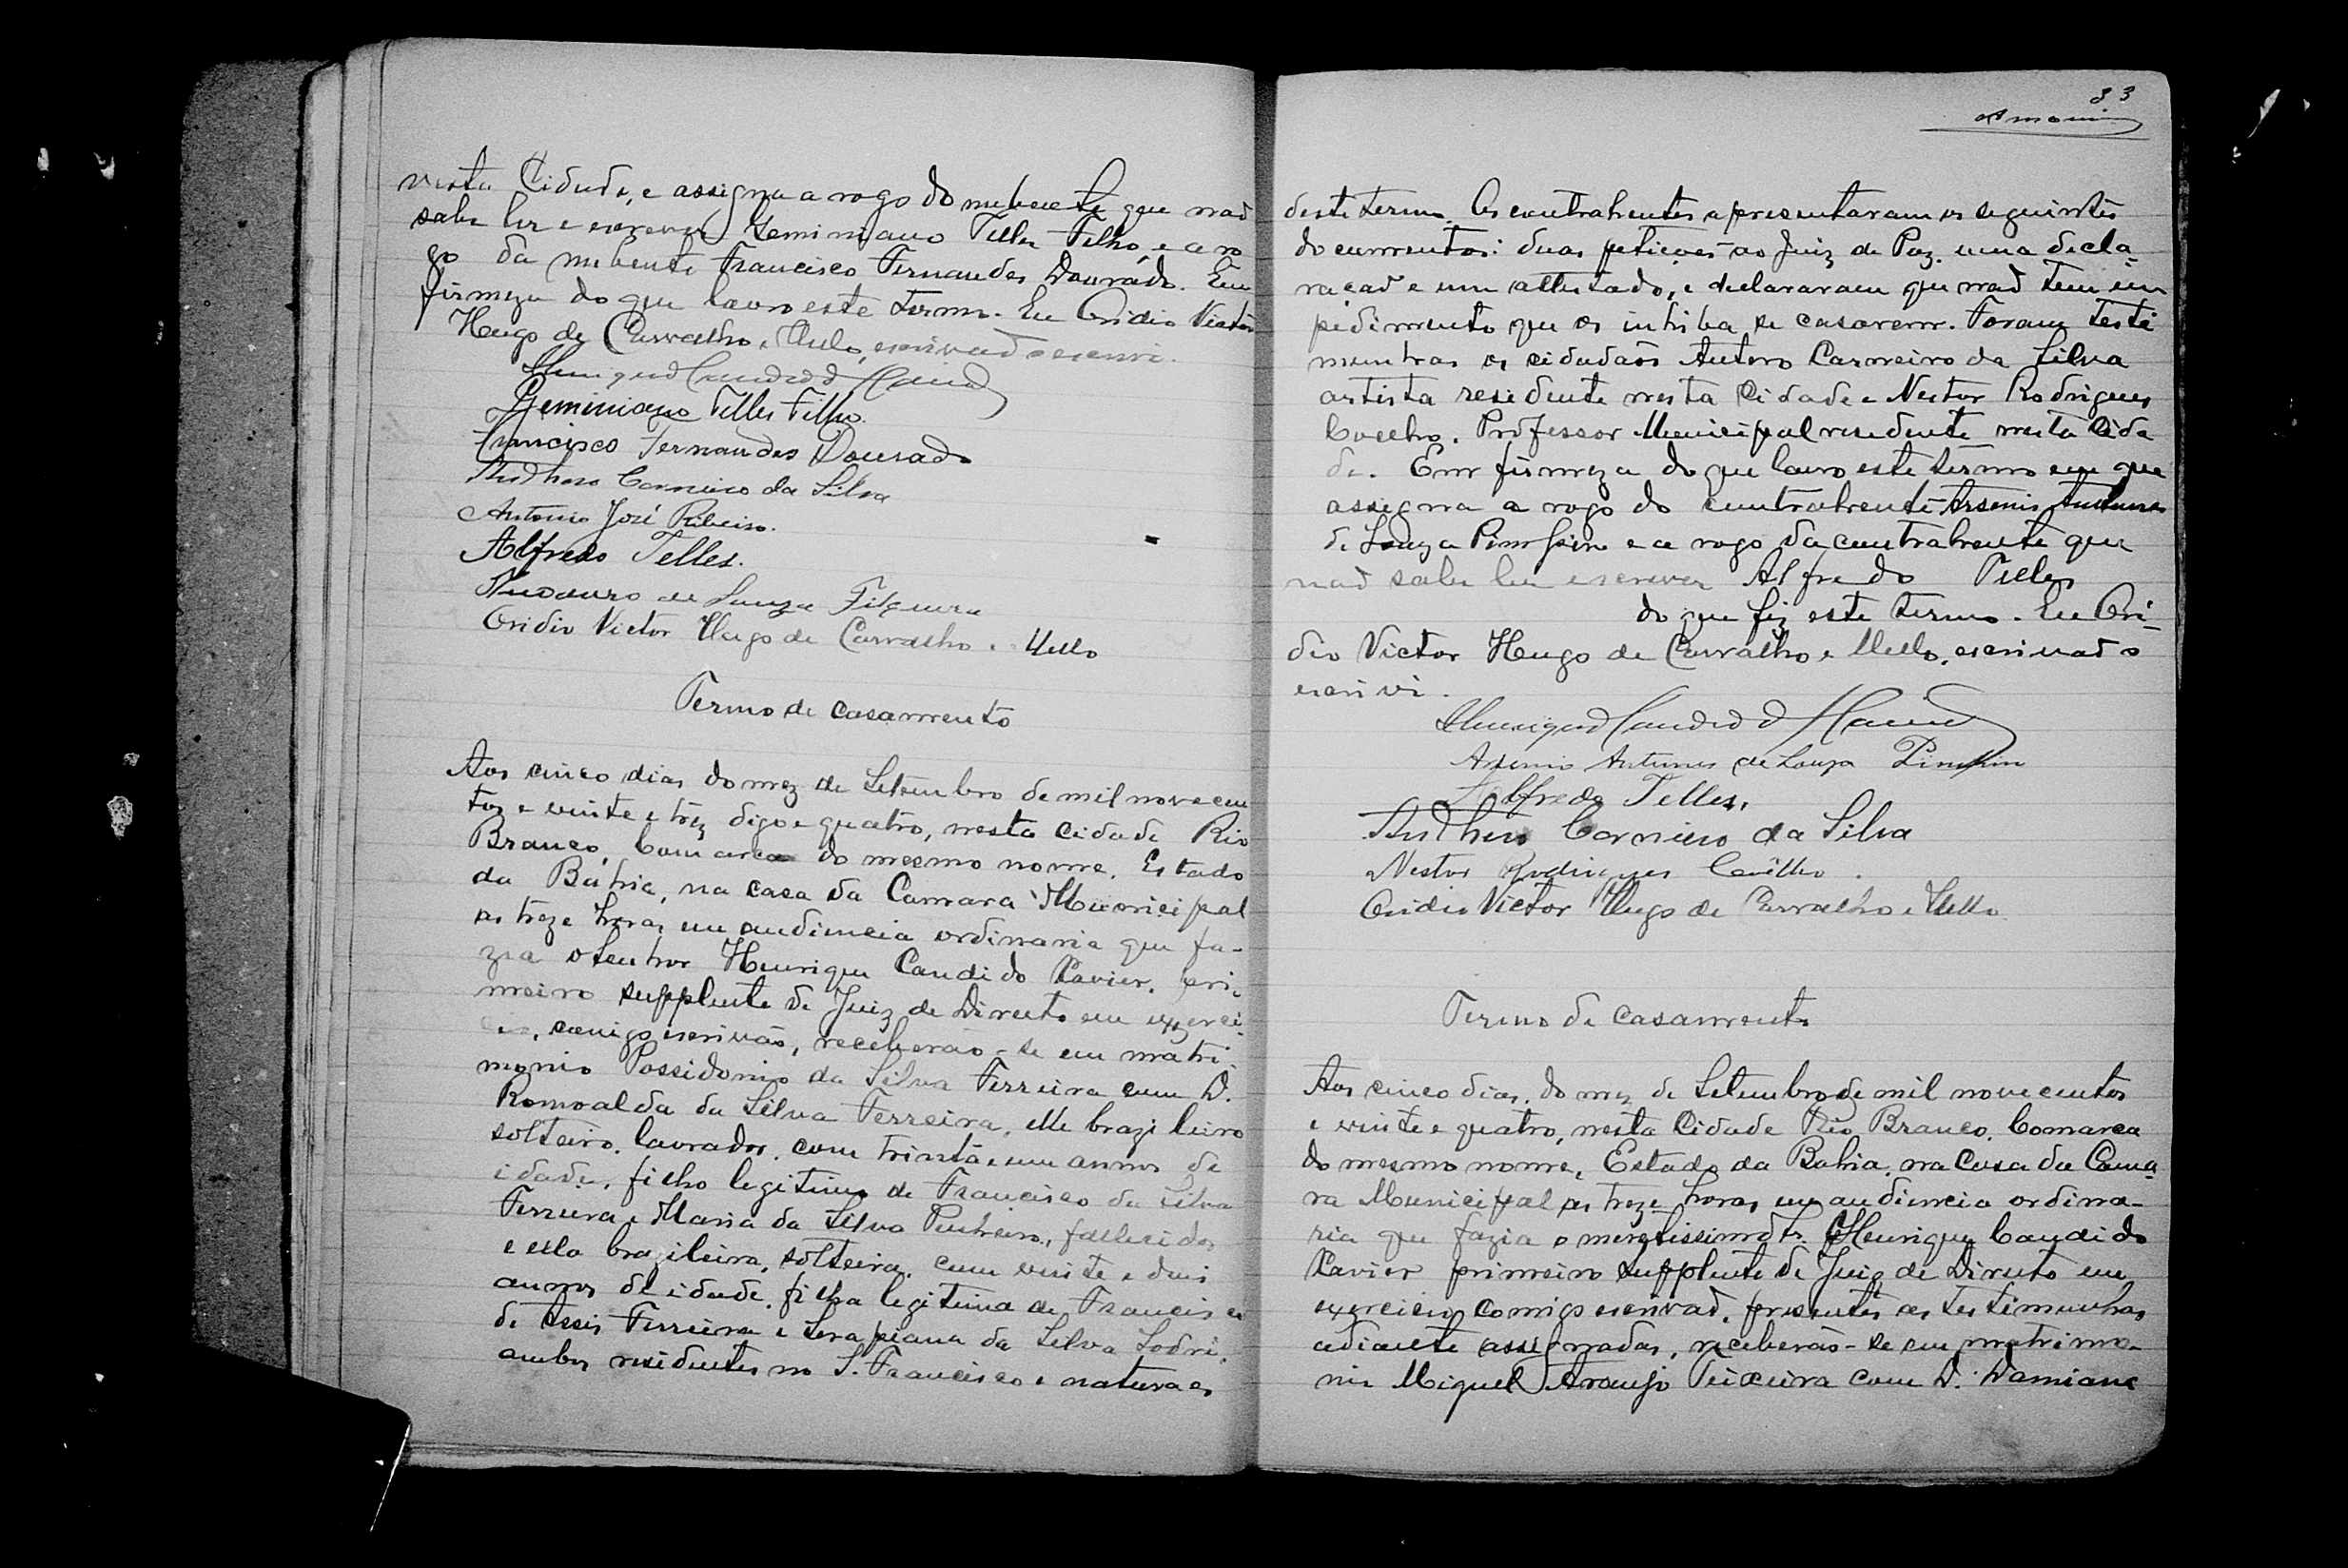 nesta Cidade, e assigna a rogo do nubente que naõ
sabe ler e escrever Geminiano Telles Filho, e a ro
go da nubente Francisco Fernandes Dourado. Em
firmeza do que lavro este termo. Eu Ovidio Victor
Hugo de Carvalho e Mello, escrivaõ o escrevi.
Geminiano Telles Filho.
Francisco Fernandes Dourado
Anthero Carneiro da Silva
Antonio José Ribeiro.
Alfredo Telles.
Theoduro de Souza Filgueira
Ovidio Victor Hugo de Carvalho e Mello
Termo de casamento
Aos cinco dias do mez de Setembro de mil novecen
tos e vinte e trez digo e quatro, nesta cidade Rio
Branco, Comarca do mesmo nome, Estado
da Bahia, na casa da Camara Municipal
as treze horas em audiencia ordinaria que fa-
zia o Senhor Henrique Candido Xavier, pri-
meiro supplente de Juiz de Direito em exerci-
cio, comigo escrivão, receberão-se em matri
monio Possidonio da Silva Ferreira com D.
Romoalda da Silva Ferreira, elle brazileiro
solteiro, lavrador, com trinta e um annos de
idade, filho legitimo de Francisco da Silva
Ferreira e Maria da Silva Pinheiro, fallecidos
e ella brazileira, solteira, com vinte e dois
annos de idade, filha legitima de Francisco
de Assis Ferreira e Serapiana da Silva Sodré,
ambos residentes no S. Francisco e naturaes
33
Amorim
deste termo. Os contrahentes apresentaram os seguintes
documentos: duas petições ao Juiz de Paz, uma decla-
raçaõ e um attestado, e declararam que naõ tem im
pedimento que os inhiba se casarem. Foram teste
munhas os cidadaõs Antero Carneiro da Silva
artista residente nesta Cidade e Nestor Rodrigues
Coelho, Professor Municipal residente nesta Cida
de. Em firmeza do que lavro este termo em que
assigna a rogo do contrahente Arsenio Antunes
de Souza e a rogo da contrahente que
naõ sabe ler escrever Alfredo Telles
do que fiz este termo. Eu Ovi-
dio Victor Hugo de Carvalho e Mello, escrivaõ o
escrivi.
Arsenio Antunes de Souza
Alfredo Telles.
Anthero Carneiro da Silva
Nestor Rodrigues Coêlho.
Ovidio Victor Hugo de Carvalho e Mello
Termo de casamento
Aos cinco dias do mez de Setembro de mil novecentos
e vinte e quatro, nesta Cidade Rio Branco, Comarca
do mesmo nome, Estado da Bahia, na Casa da Cama
ra Municipal as treze horas em audiencia ordina-
ria que fazia o Henrique Candido
Xavier primeiro supplente de Juiz de Direito em
exercicio, comigo escrivaõ, presentes as testimunhas
adiante assignadas, receberão-se em matrimo-
nio Miguel Araujo Teixeira com D. Damiana